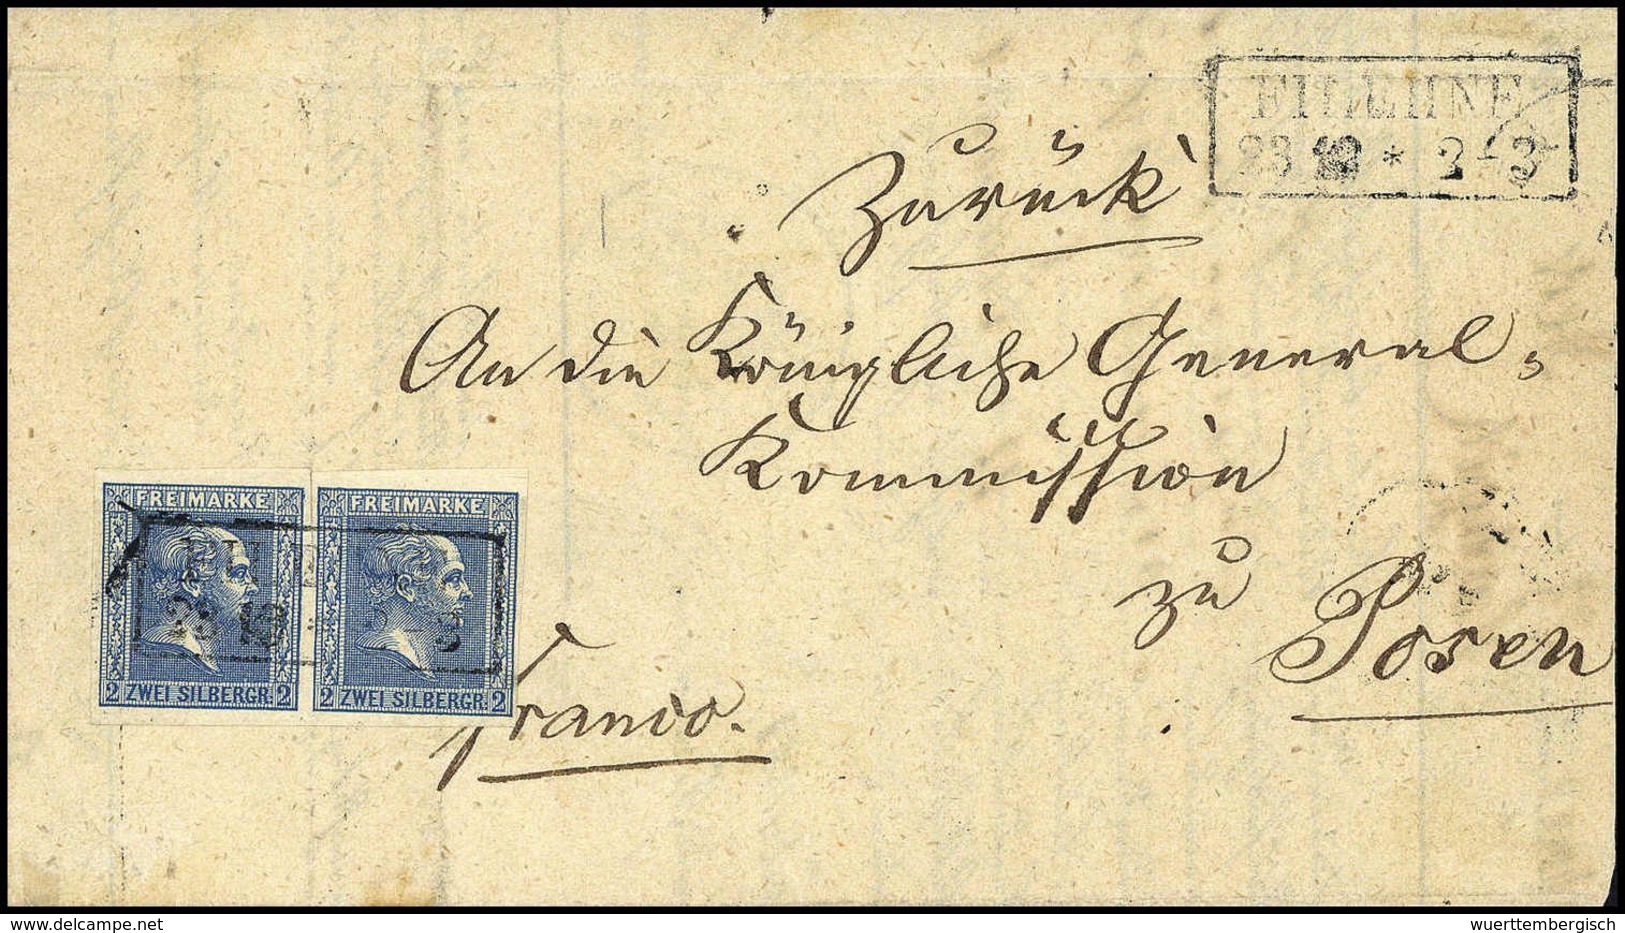 FILEHNE
23 12 * 2-3
Zurück
An die Königliche General-
Kommission
zu
Posen
FREIMARKE FREIMARKE
2 ZWEI SILBERGR. 2 2 ZWEI SILBERGR. 2
Franco.
delcampe.net
wuerttembergisch